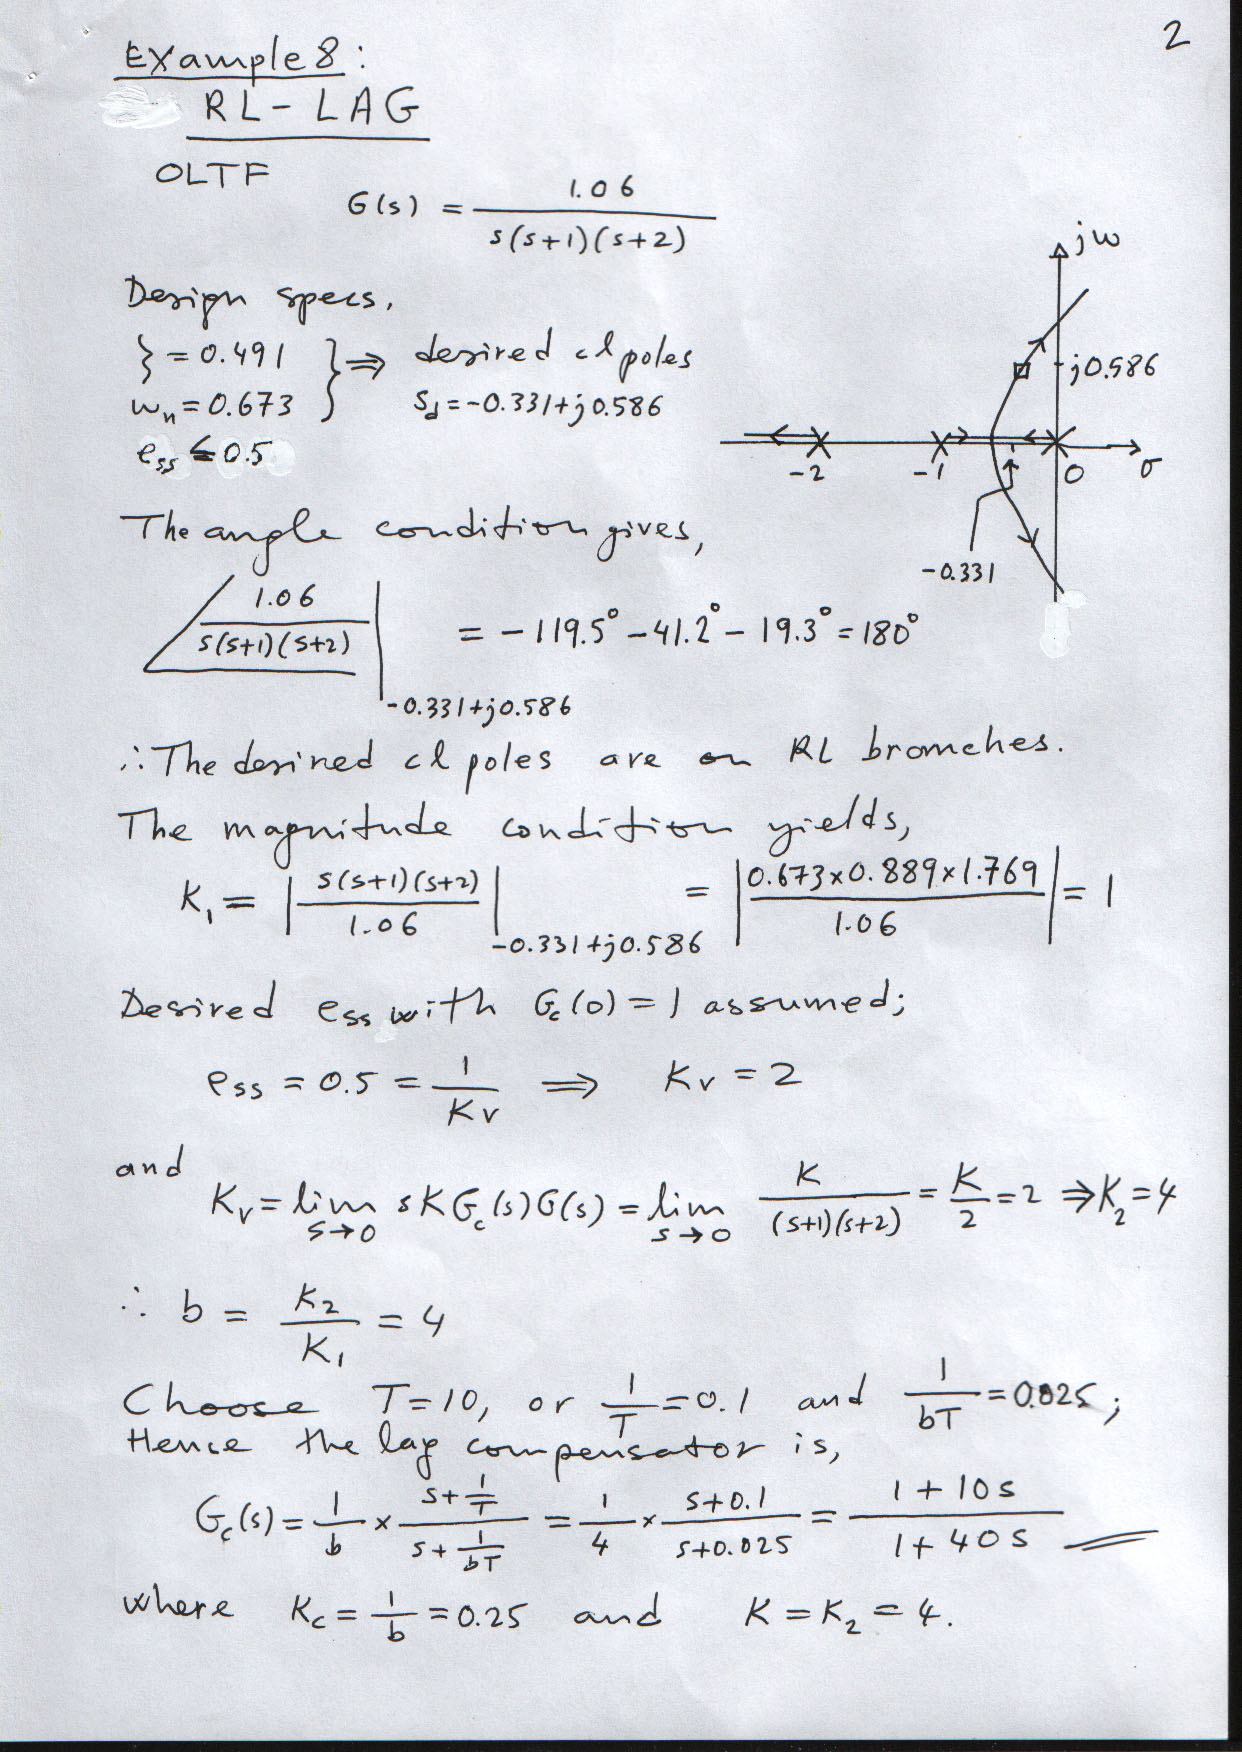 2
Example 8:
RL-LAG
OLTF
G(s) = 1.06 / s(s+1)(s+2)
Design specs,
ζ = 0.491 } ⇒ desired cl poles
ωn = 0.673 } sd = -0.331+j0.586
ess ≤ 0.5
jω
j0.586
-2 -1 0 σ
-0.331
The angle condition gives,
∠ 1.06 / s(s+1)(s+2) | -0.331+j0.586 = -119.5° - 41.2° - 19.3° = 180°
∴ The desired cl poles are on RL branches.
The magnitude condition yields,
K1 = | s(s+1)(s+2) / 1.06 | -0.331+j0.586 = | 0.673×0.889×1.769 / 1.06 | = 1
Desired ess with Gc(0) = 1 assumed;
ess = 0.5 = 1 / Kv ⇒ Kv = 2
and
Kv = lim s→0 sKGc(s)G(s) = lim s→0 K / (s+1)(s+2) = K / 2 = 2 ⇒ K2 = 4
∴ b = K2 / K1 = 4
Choose T=10, or 1/T = 0.1 and 1/bT = 0.025;
Hence the lag compensator is,
Gc(s) = 1/b × (s+1/T) / (s+1/bT) = 1/4 × (s+0.1) / (s+0.025) = (1+10s) / (1+40s)
where Kc = 1/b = 0.25 and K = K2 = 4.